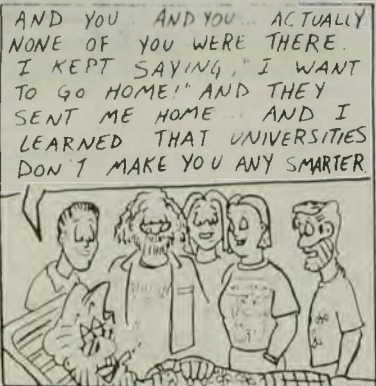 AND YOU... AND YOU... ACTUALLY
NONE OF YOU WERE THERE.
I KEPT SAYING, "I WANT
TO GO HOME!" AND THEY
SENT ME HOME... AND I
LEARNED THAT UNIVERSITIES
DON'T MAKE YOU ANY SMARTER.